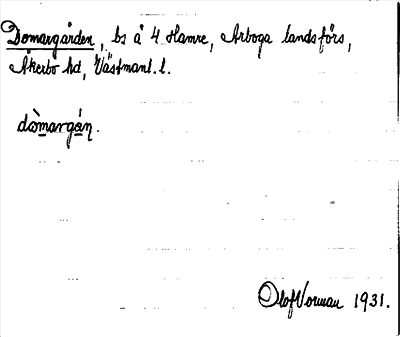 Domargården, bs å 4 Hamre, Arboga landsförs,
Åkerbo hd, Västmanl. l.
dòmargán.
Olof Vorman 1931.